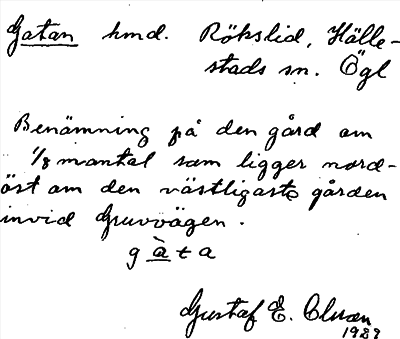 Gatan hmd. Rökslid, Hälle-
stads sn. Ögl
Benämning på den gård om
1/8 mantal som ligger nord-
öst om den västligaste gården
invid Gruvvägen.
g à t a
Gustaf E.